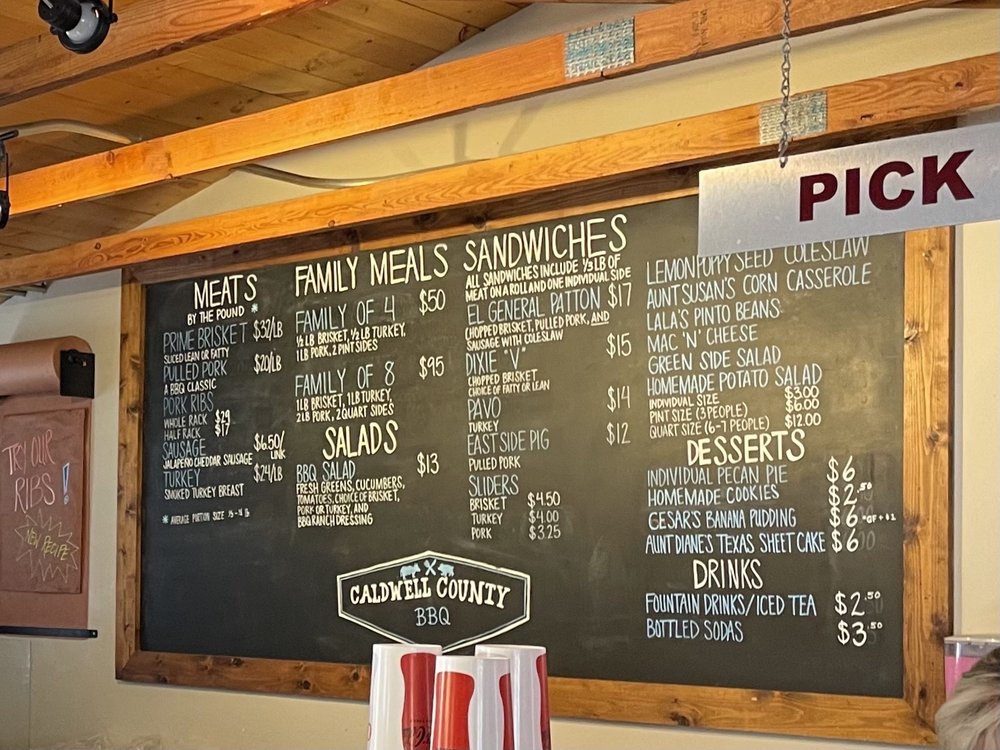 PICK
MEATS
BY THE POUND *
PRIME BRISKET $32/LB
SLICED LEAN OR FATTY
PULLED PORK $20/LB
A BBQ CLASSIC
PORK RIBS
WHOLE RACK $29
HALF RACK $17
SAUSAGE $6.50/
JALAPEÑO CHEDDAR SAUSAGE LINK
TURKEY $24/LB
SMOKED TURKEY BREAST
* AVERAGE PORTION SIZE
FAMILY MEALS
FAMILY OF 4 $50
½ LB BRISKET, ½ LB TURKEY,
1LB PORK, 2 PINT SIDES
FAMILY OF 8 $95
1LB BRISKET, 1LB TURKEY,
2LB PORK, 2 QUART SIDES
SALADS
BBQ SALAD $13
FRESH GREENS, CUCUMBERS,
TOMATOES, CHOICE OF BRISKET,
PORK OR TURKEY, AND
BBQ RANCH DRESSING
SANDWICHES
ALL SANDWICHES INCLUDE ⅓ LB OF
MEAT ON A ROLL AND ONE INDIVIDUAL SIDE
EL GENERAL PATTON $17
CHOPPED BRISKET, PULLED PORK, AND
SAUSAGE WITH COLESLAW
DIXIE "V" $15
CHOPPED BRISKET
CHOICE OF FATTY OR LEAN
PAVO $14
TURKEY
EAST SIDE PIG $12
PULLED PORK
SLIDERS
BRISKET $4.50
TURKEY $4.00
PORK $3.25
LEMON POPPY SEED COLESLAW
AUNT SUSAN'S CORN CASSEROLE
LALA'S PINTO BEANS
MAC 'N' CHEESE
GREEN SIDE SALAD
HOMEMADE POTATO SALAD
INDIVIDUAL SIZE $3.00
PINT SIZE (3 PEOPLE) $6.00
QUART SIZE (6-7 PEOPLE) $12.00
DESSERTS
INDIVIDUAL PECAN PIE $6
HOMEMADE COOKIES $2.50
CESAR'S BANANA PUDDING $6 *GF +$1
AUNT DIANE'S TEXAS SHEET CAKE $6
DRINKS
FOUNTAIN DRINKS/ICED TEA $2.50
BOTTLED SODAS $3.50
CALDWELL COUNTY
BBQ
TRY OUR
RIBS!
NEW RECIPE